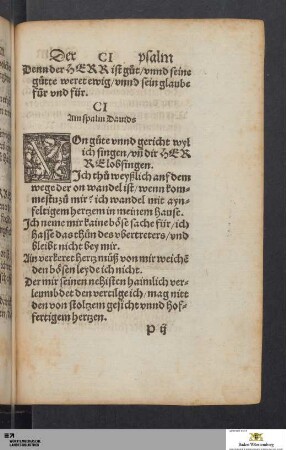 Der CI psalm
Denn der HERR ist güt/ vnnd seine
gütte weret ewig/ vnnd sein glaube
für vnd für.
CI
Ain psalm Dauids
VOn güte vnnd gericht wyl
ich singen/ vñ dir HER
RE lobsingen.
Ich thů weyßlich auf dem
wege der on wandel ist/ wenn kom-
mestu zů mir? ich wandel mit ayn-
feltigem hertzem in meinem hause.
Ich neme mir kaine böst sache für/ ich
hasse das thůn des vbertreters/ vnd
bleibt nicht bey mir.
Ain verkeret hertz můß von mir weichẽ
den bösen leyde ich nicht.
Der mir seinen nehisten haimlich ver-
leumbdet den vertilge ich/ mag nitt
den von stoltzem gesicht vnnd hof-
fertigem hertzen.
P ij
Baden-Württemberg